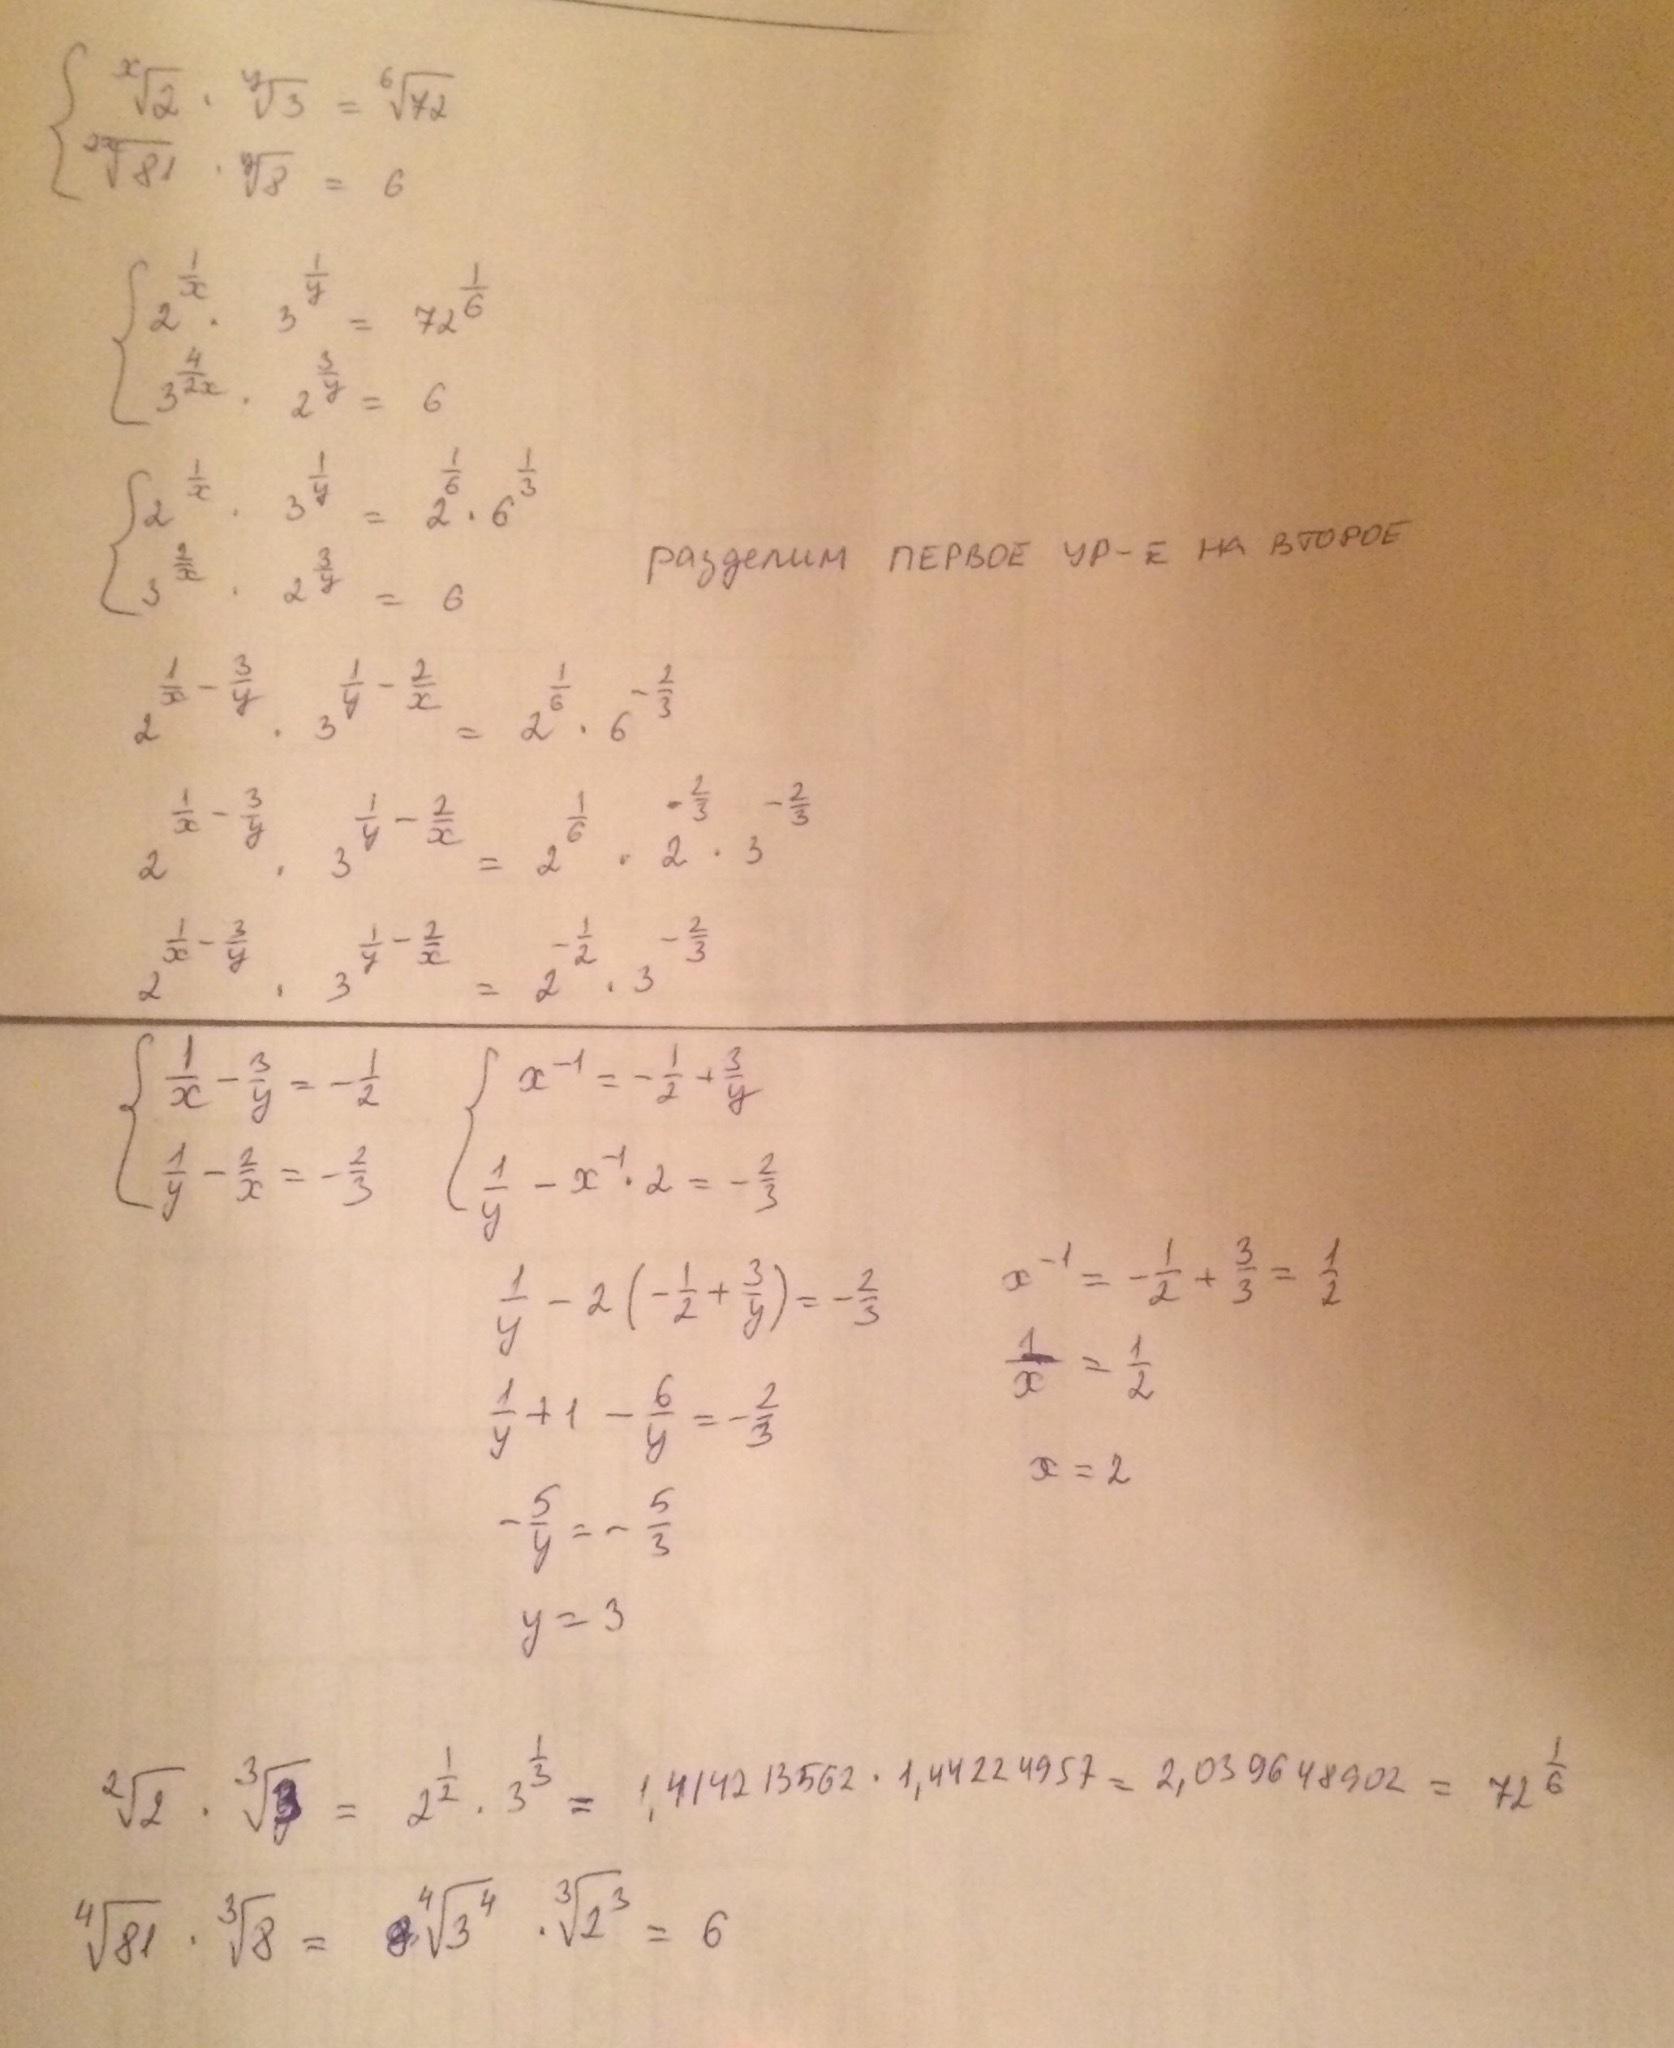 { ˣ√2 · ʸ√3 = ⁶√72
²ˣ√81 · ʸ√8 = 6
{ 2^(1/x) · 3^(1/y) = 72^(1/6)
3^(4/2x) · 2^(3/y) = 6
{ 2^(1/x) · 3^(1/y) = 2^(1/6) · 6^(1/3)
3^(2/x) · 2^(3/y) = 6 разделим ПЕРВОЕ УР-Е НА ВТОРОЕ
2^(1/x - 3/y) · 3^(1/y - 2/x) = 2^(1/6) · 6^(-2/3)
2^(1/x - 3/y) · 3^(1/y - 2/x) = 2^(1/6) · 2^(-2/3) · 3^(-2/3)
2^(1/x - 3/y) · 3^(1/y - 2/x) = 2^(-1/2) · 3^(-2/3)
{ 1/x - 3/y = -1/2 { x^(-1) = -1/2 + 3/y
1/y - 2/x = -2/3 1/y - x^(-1) · 2 = -2/3
1/y - 2(-1/2 + 3/y) = -2/3 x^(-1) = -1/2 + 3/3 = 1/2
1/y + 1 - 6/y = -2/3 1/x = 1/2
-5/y = -5/3 x = 2
y = 3
²√2 · ³√3 = 2^(1/2) · 3^(1/3) = 1,414213562 · 1,44224957 = 2,039648902 = 72^(1/6)
⁴√81 · ³√8 = ⁴√3⁴ · ³√2³ = 6